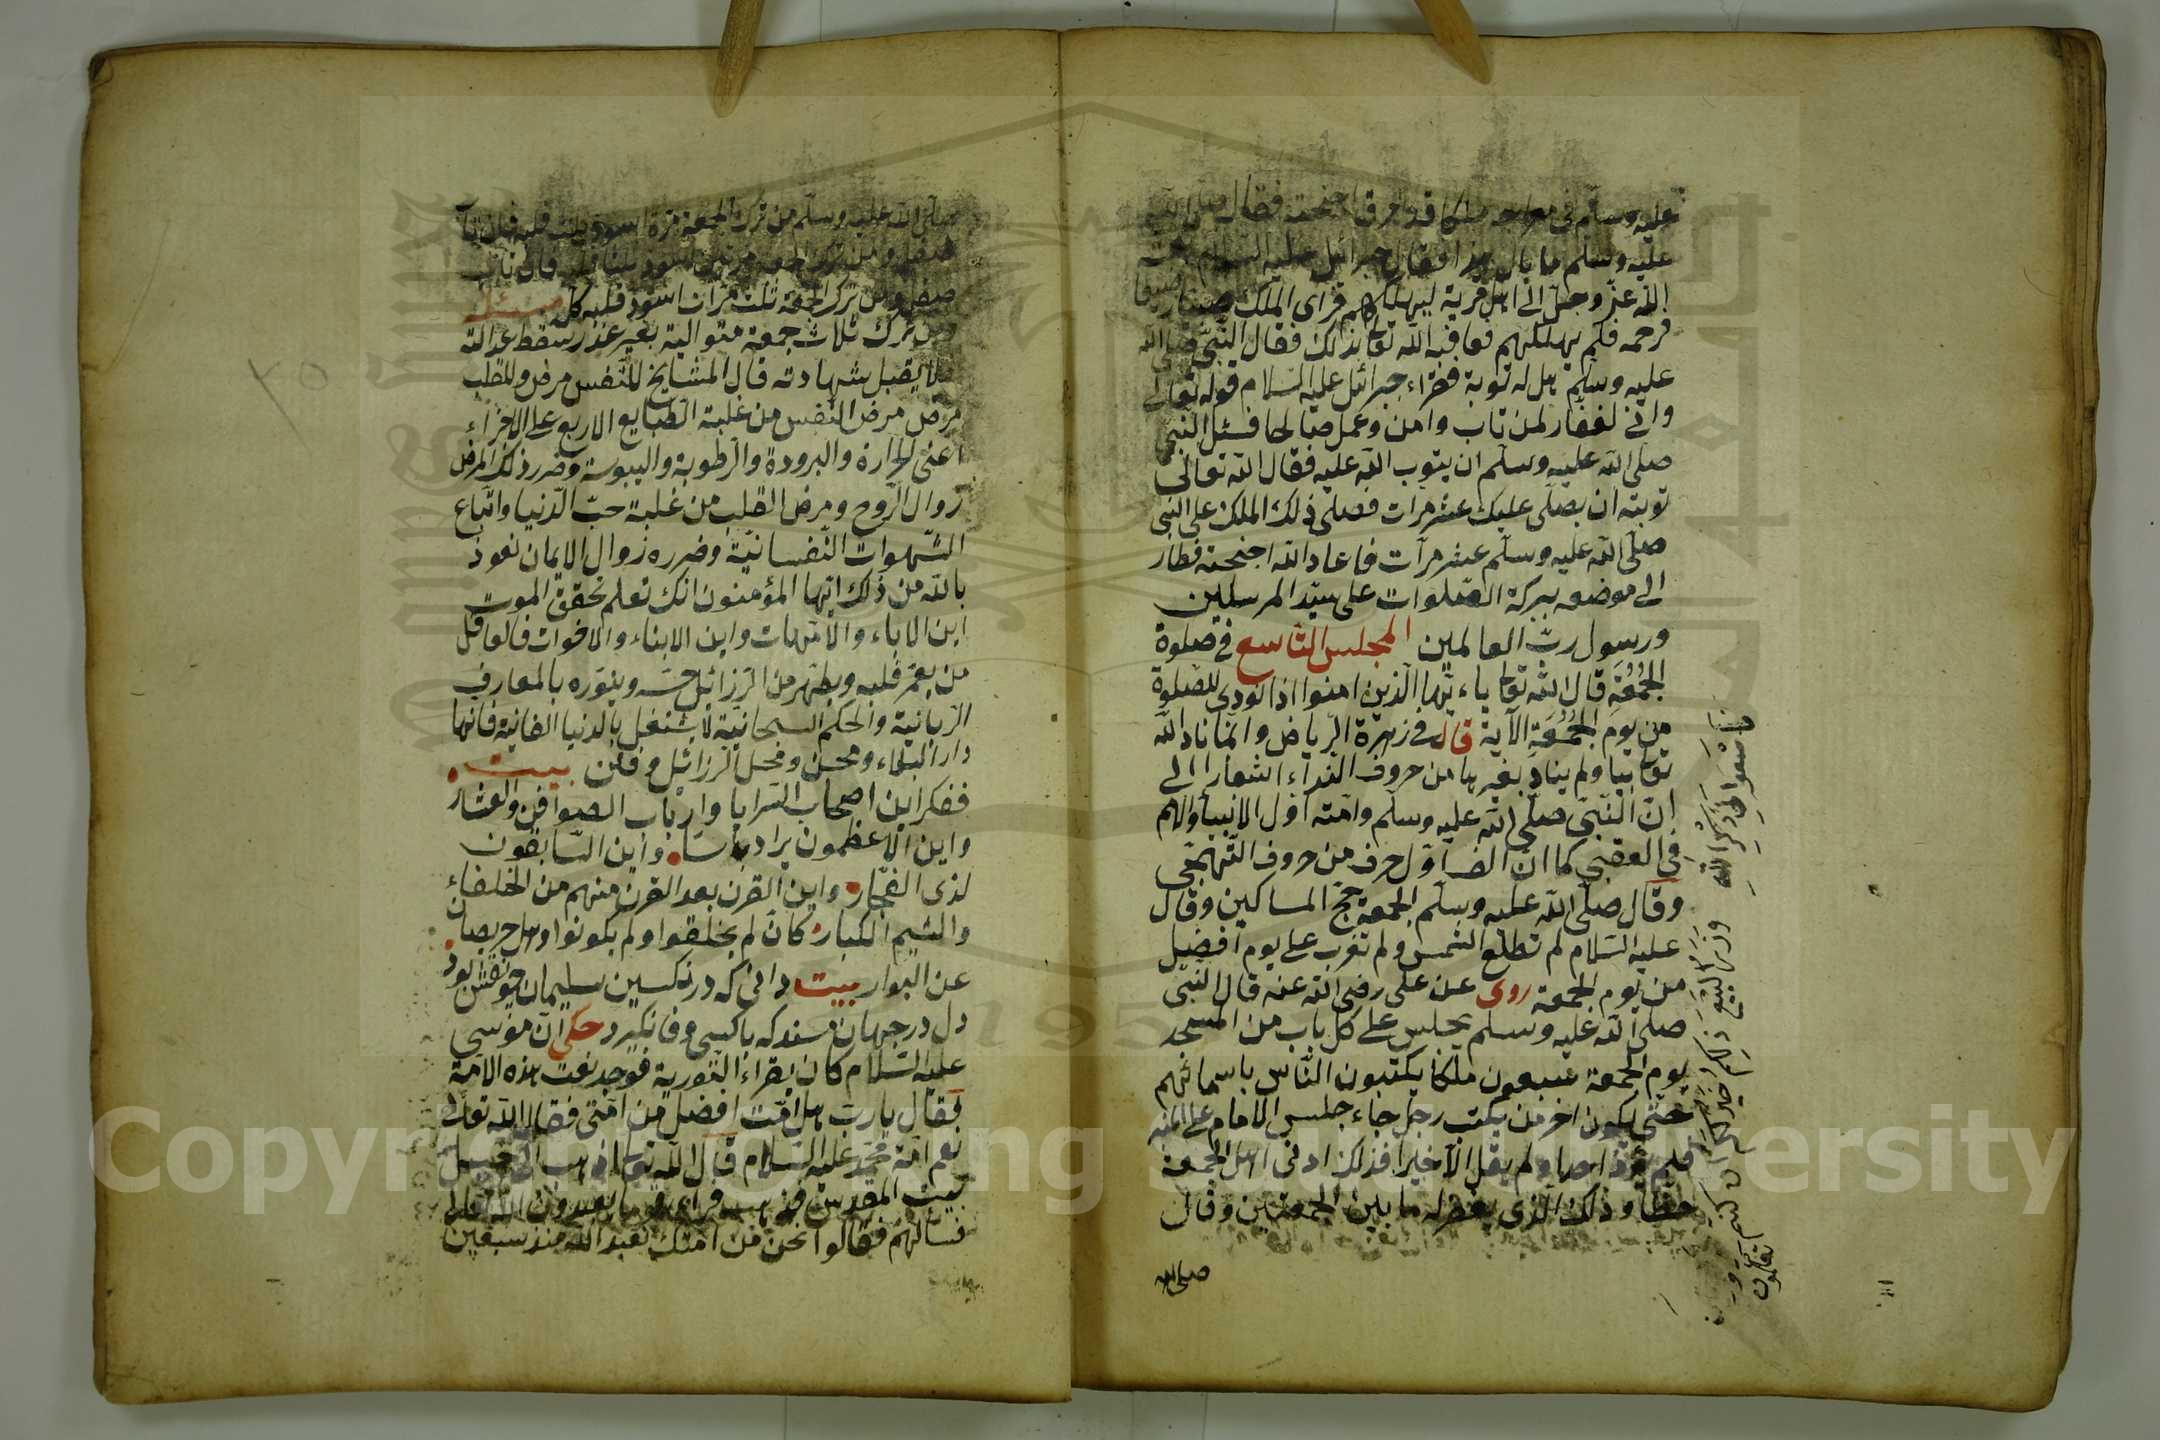 عليه وسلم في معراجه ملكا قد احرق اجنحته فقال صلى الله
عليه وسلم ما بال هذا فقال جبرائيل عليه السلام بعثه
الله عز وجل الى اهل قرية ليهلكهم فراى الملك صغارا ضعيفا
فرحمه فلم يهلكهم فعاقبه الله تعا بذلك فقال النبي صلى الله
عليه وسلم هل له توبة فقراء جبرائل عليه السلام قوله تعالى
واني لغفار لمن تاب وامن وعمل صالحا فسئل النبي
صلى الله عليه وسلم ان يتوب الله عليه فقال الله تعالى
توبته ان يصلى عليك عشر مرات فصلى ذلك الملك على النبي
صلى الله عليه وسلم عشر مرآت فاعاد الله اجنحته فطار
الى موضعه ببركة الصلوات على سيد المرسلين
ورسول رب العالمين المجلس التاسع في صلوة
الجمعة قال الله تعا ياءيها الذين امنوا اذا نودي للصلوة
من يوم الجمعة الآية قال في زهرة الرياض وانما ناد الله
تعا بيا ولم يناد بغيرها من حروف النداء اشعارا الى
ان النبي صلى الله عليه وسلم وامته اول الانبيا والامم
في العقبى كما ان الف اول حرف من حروف التهجى
وقال صلى الله عليه وسلم الجمعة حج المساكين وقال
عليه السلام لم تطلع الشمس ولم تغرب على يوم افضل
من يوم الجمعة روى عن على رضى الله عنه قال النبي
صلى الله عليه وسلم يجلس على كل باب من المسجد
يوم الجمعة سبعون ملكا يكتبون الناس باسمائهم
حتى يكون اخر من يكتب رجل جاء جلس الامام على المنبر
فلم يؤذ احدا ولم يقل الا خيرا فذلك ادنى اهل الجمعة
حظا وذلك الذى يغفر له ما بين الجمعتين وقال
صلى الله
فاسعوا الى ذكر الله وذروا البيع ذلكم خير لكم ان كنتم تعلمون
صلى الله عليه وسلم من ترك الجمعة مرة اسود ثلث قلبه فان تاب
صقل ومن ترك الجمعة مرتين اسود ثلثا قلبه فان تاب
صقل ومن ترك الجمعة ثلث مرات اسود قلبه كل مسئله
ومن ترك ثلاث جمعة متوالية بغير عذر سقط عدالته
لا يقبل شهادته قال المشايخ للنفس مرض وللقلب
مرض مرض النفس من غلبة الطبايع الاربع على الاجزاء
اعنى الحرارة والبرودة والرطوبة واليبوسة وضرر ذلك المرض
زوال الروح ومرض القلب من غلبة حب الدنيا واتباع
الشهوات النفسانية وضرره زوال الايمان نعوذ
بالله من ذلك ايها المؤمنون انك تعلم تحقق الموت
اين الاباء والامهات واين الابناء والاخوات فالعاقل
من يعمر قلبه ويطهر من الرزائل حسه وينوره بالمعارف
الربانية والحكم السبحانية لا يشتغل بالدنيا الفانية فانها
دار البلاء ومحن ومحل الرزائل وفتن بيت
ففكر اين اصحاب السرايا وارباب الصوافن والعشار
واين الاعظمون يرا دباسا واين السابقون
لذى الفخار واين القرن بعد القرن منهم من الخلفاء
والشيم الكبار كان لم يخلقوا ولم يكونوا وهل حى يصان
عن البوار بيت دانى كه در نكسين سليمان چو نقش بود
دل در جهان مبند كه با كسى وفا نكرد حكى ان موسى
عليه السلام كان يقراء التورية فوجد نعت هذه الامة
فقال يا رب هل امت افضل من امتى فقال الله تعالى
نعم امة محمد عليه السلام قال الله تعا اذهب الى جبل
بيت المقدس فذهب فراى قوما يعبدون الله تعالى
فسالهم فقالوا نحن من امتك نعبد الله منذ سبعين
٢٥
Copyright © King Saud University
1957